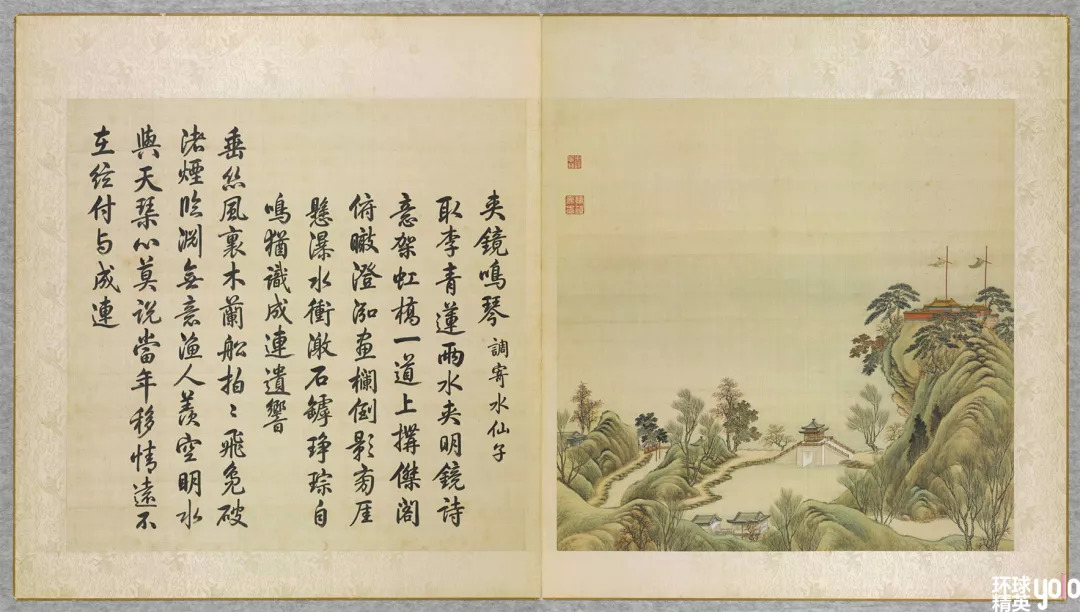 夾鏡鳴琴 調寄水仙子
取李青蓮兩水夾明鏡詩
意架虹橋一道上搆傑閣
俯瞰澄泓畫欄倒影旁厓
懸瀑水衝激石罅琤琮自
鳴猶識成連遺響
垂絲風裏木蘭船拍〻飛鳧破
渚煙臨淵無意漁人羨空明水
與天琴心莫說當年移情遠不
在絃付与成連
环球
精英
yolo